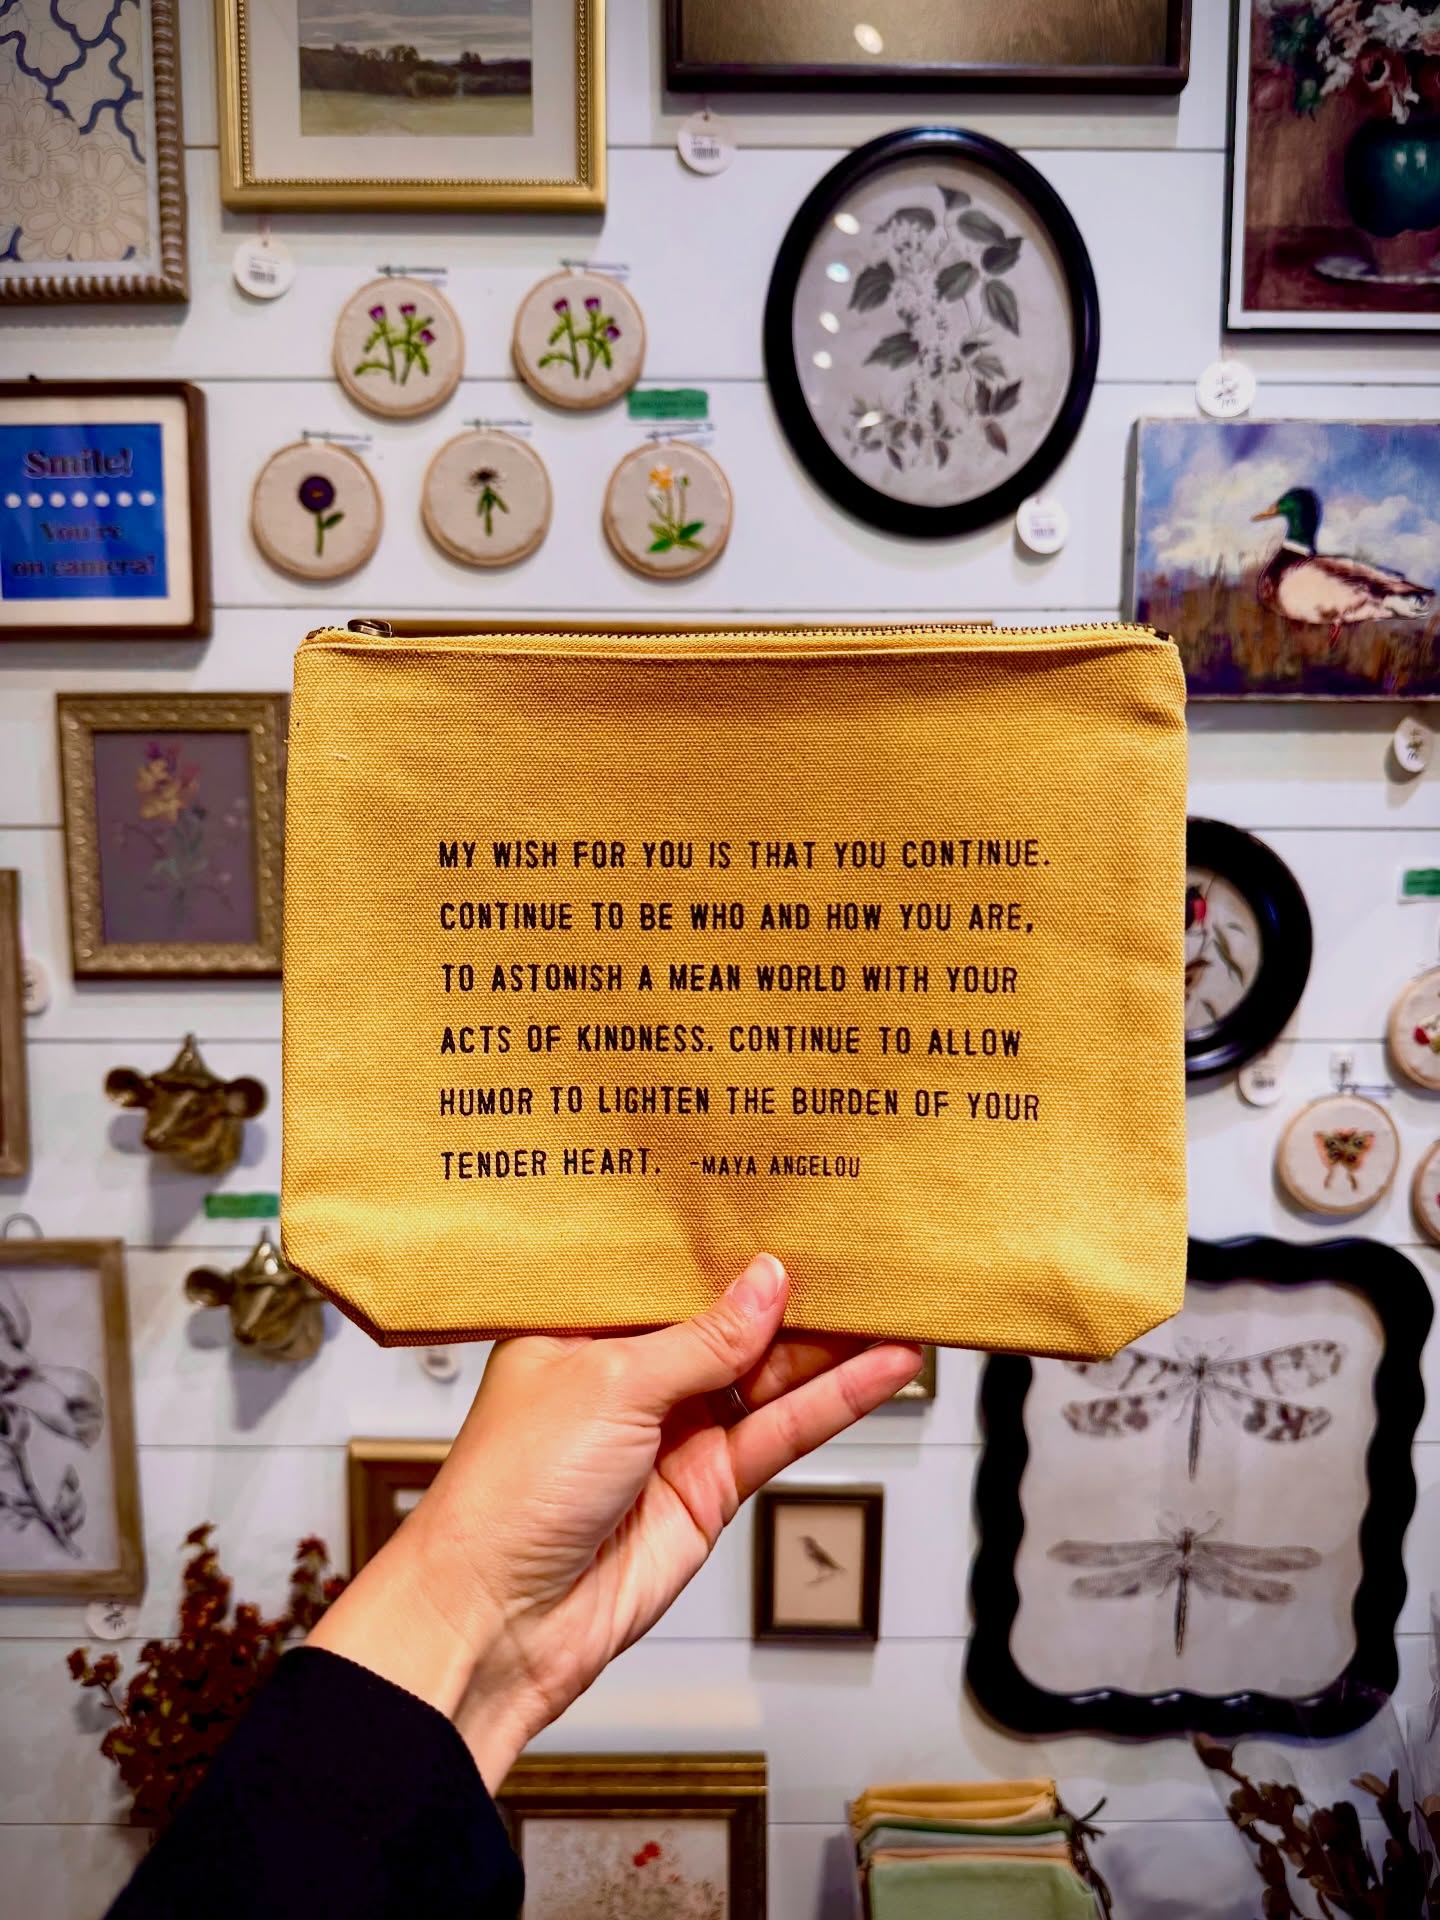 Smile!
You're
on camera!
MY WISH FOR YOU IS THAT YOU CONTINUE.
CONTINUE TO BE WHO AND HOW YOU ARE,
TO ASTONISH A MEAN WORLD WITH YOUR
ACTS OF KINDNESS. CONTINUE TO ALLOW
HUMOR TO LIGHTEN THE BURDEN OF YOUR
TENDER HEART. -MAYA ANGELOU